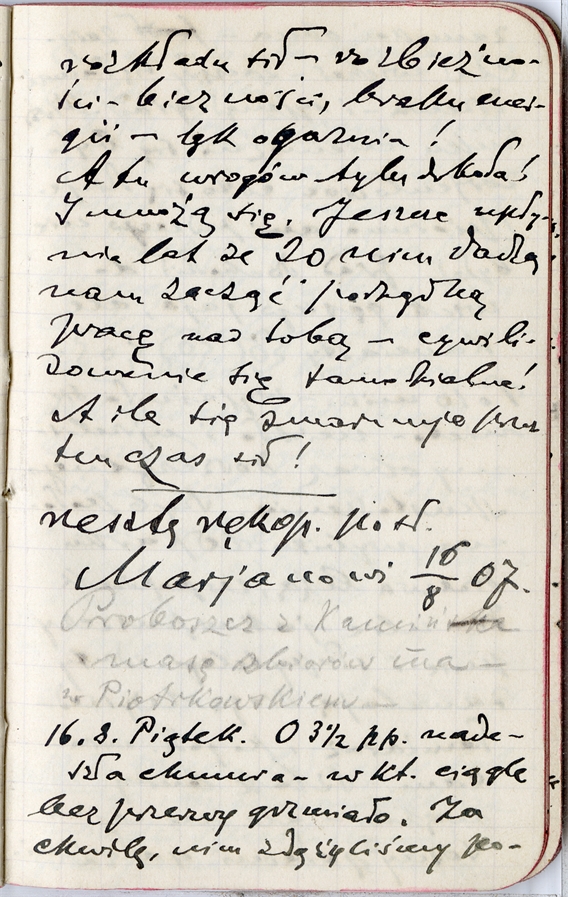 rozkładu sił – rozbieżno-
ści – bierności, braku ener-
gii – lęk ogarnia!
A tu wrogów tylu dokoła!
I mnożą się. Jeszcze upły-
nie lat ze 20 nim dadzą
nam zacząć porządną
pracę nad sobą – cywili-
zowanie się samodzielne!
A ile się zmarnuje przez
ten czas sił!
resztę rękop. posł.
Marjanowi 16/8 07.
Proboszcz z Kamińska
masę zbiorów ma –
w Piotrkowskiem –
16.8. Piątek. O 3½ pp. nade-
szła chmura – w kt. ciągle
bez przerwy grzmiało. Za
chwilę, nim zdążyliśmy po-